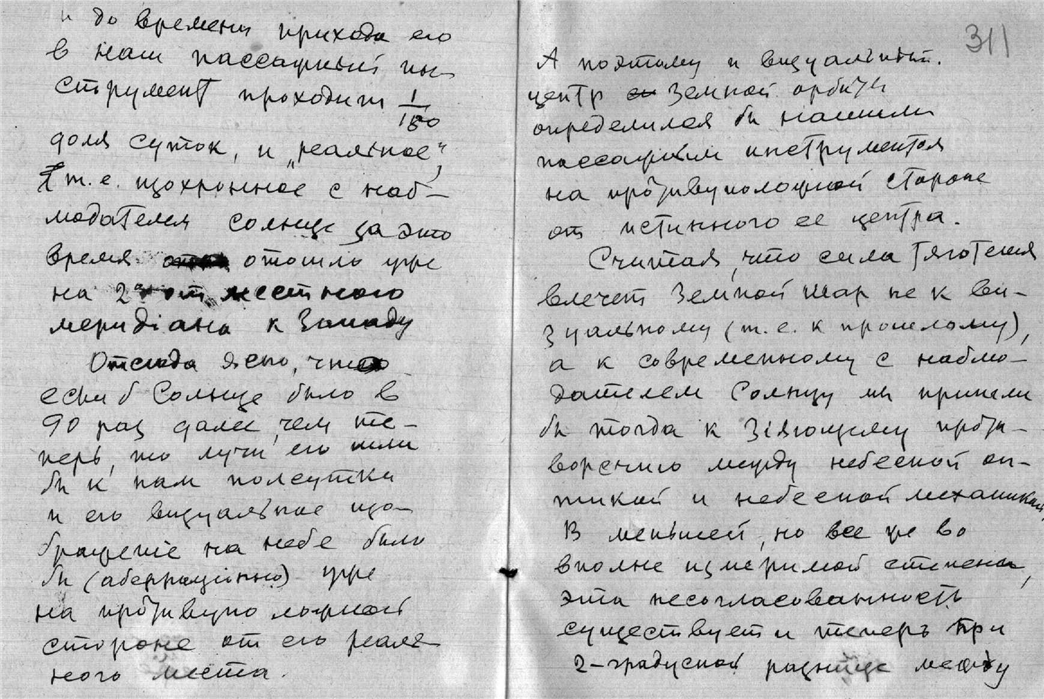 и до времени прихода его
в наш пассажный ин-
струмент проходит 1/180
доля суток, и „реальное",
т.е. изохронное с наб-
людателем солнце за это
время отошло уже
на 2° от местного
меридiана к Западу
Отсюда ясно, что
если б Солнце было в
90 раз далее, чем те-
перь, то лучи его шли
бы к нам полсутки
и его визуальное изо-
бражение на небе было
бы (аберрацiонно) уже
на противуположной
стороне от его реаль-
ного места.
311
А поэтому и визуальный
центр Земной орбиты
определился бы нашим
пассажным инструментом
на противуположной стороне
от истинного ее центра.
Считая, что сила тяготения
влечет Земной шар не к ви-
зуальному (т.е. к прошлому),
а к современному с наблю-
дателем Солнцу мы пришли
бы тогда к зiяющему проти-
воречию между небесной оп-
тикой и небесной механикой.
В меньшей, но все же во
вполне измеримой степени,
эта несогласованность
существует и теперь при
2-градусной разнице между